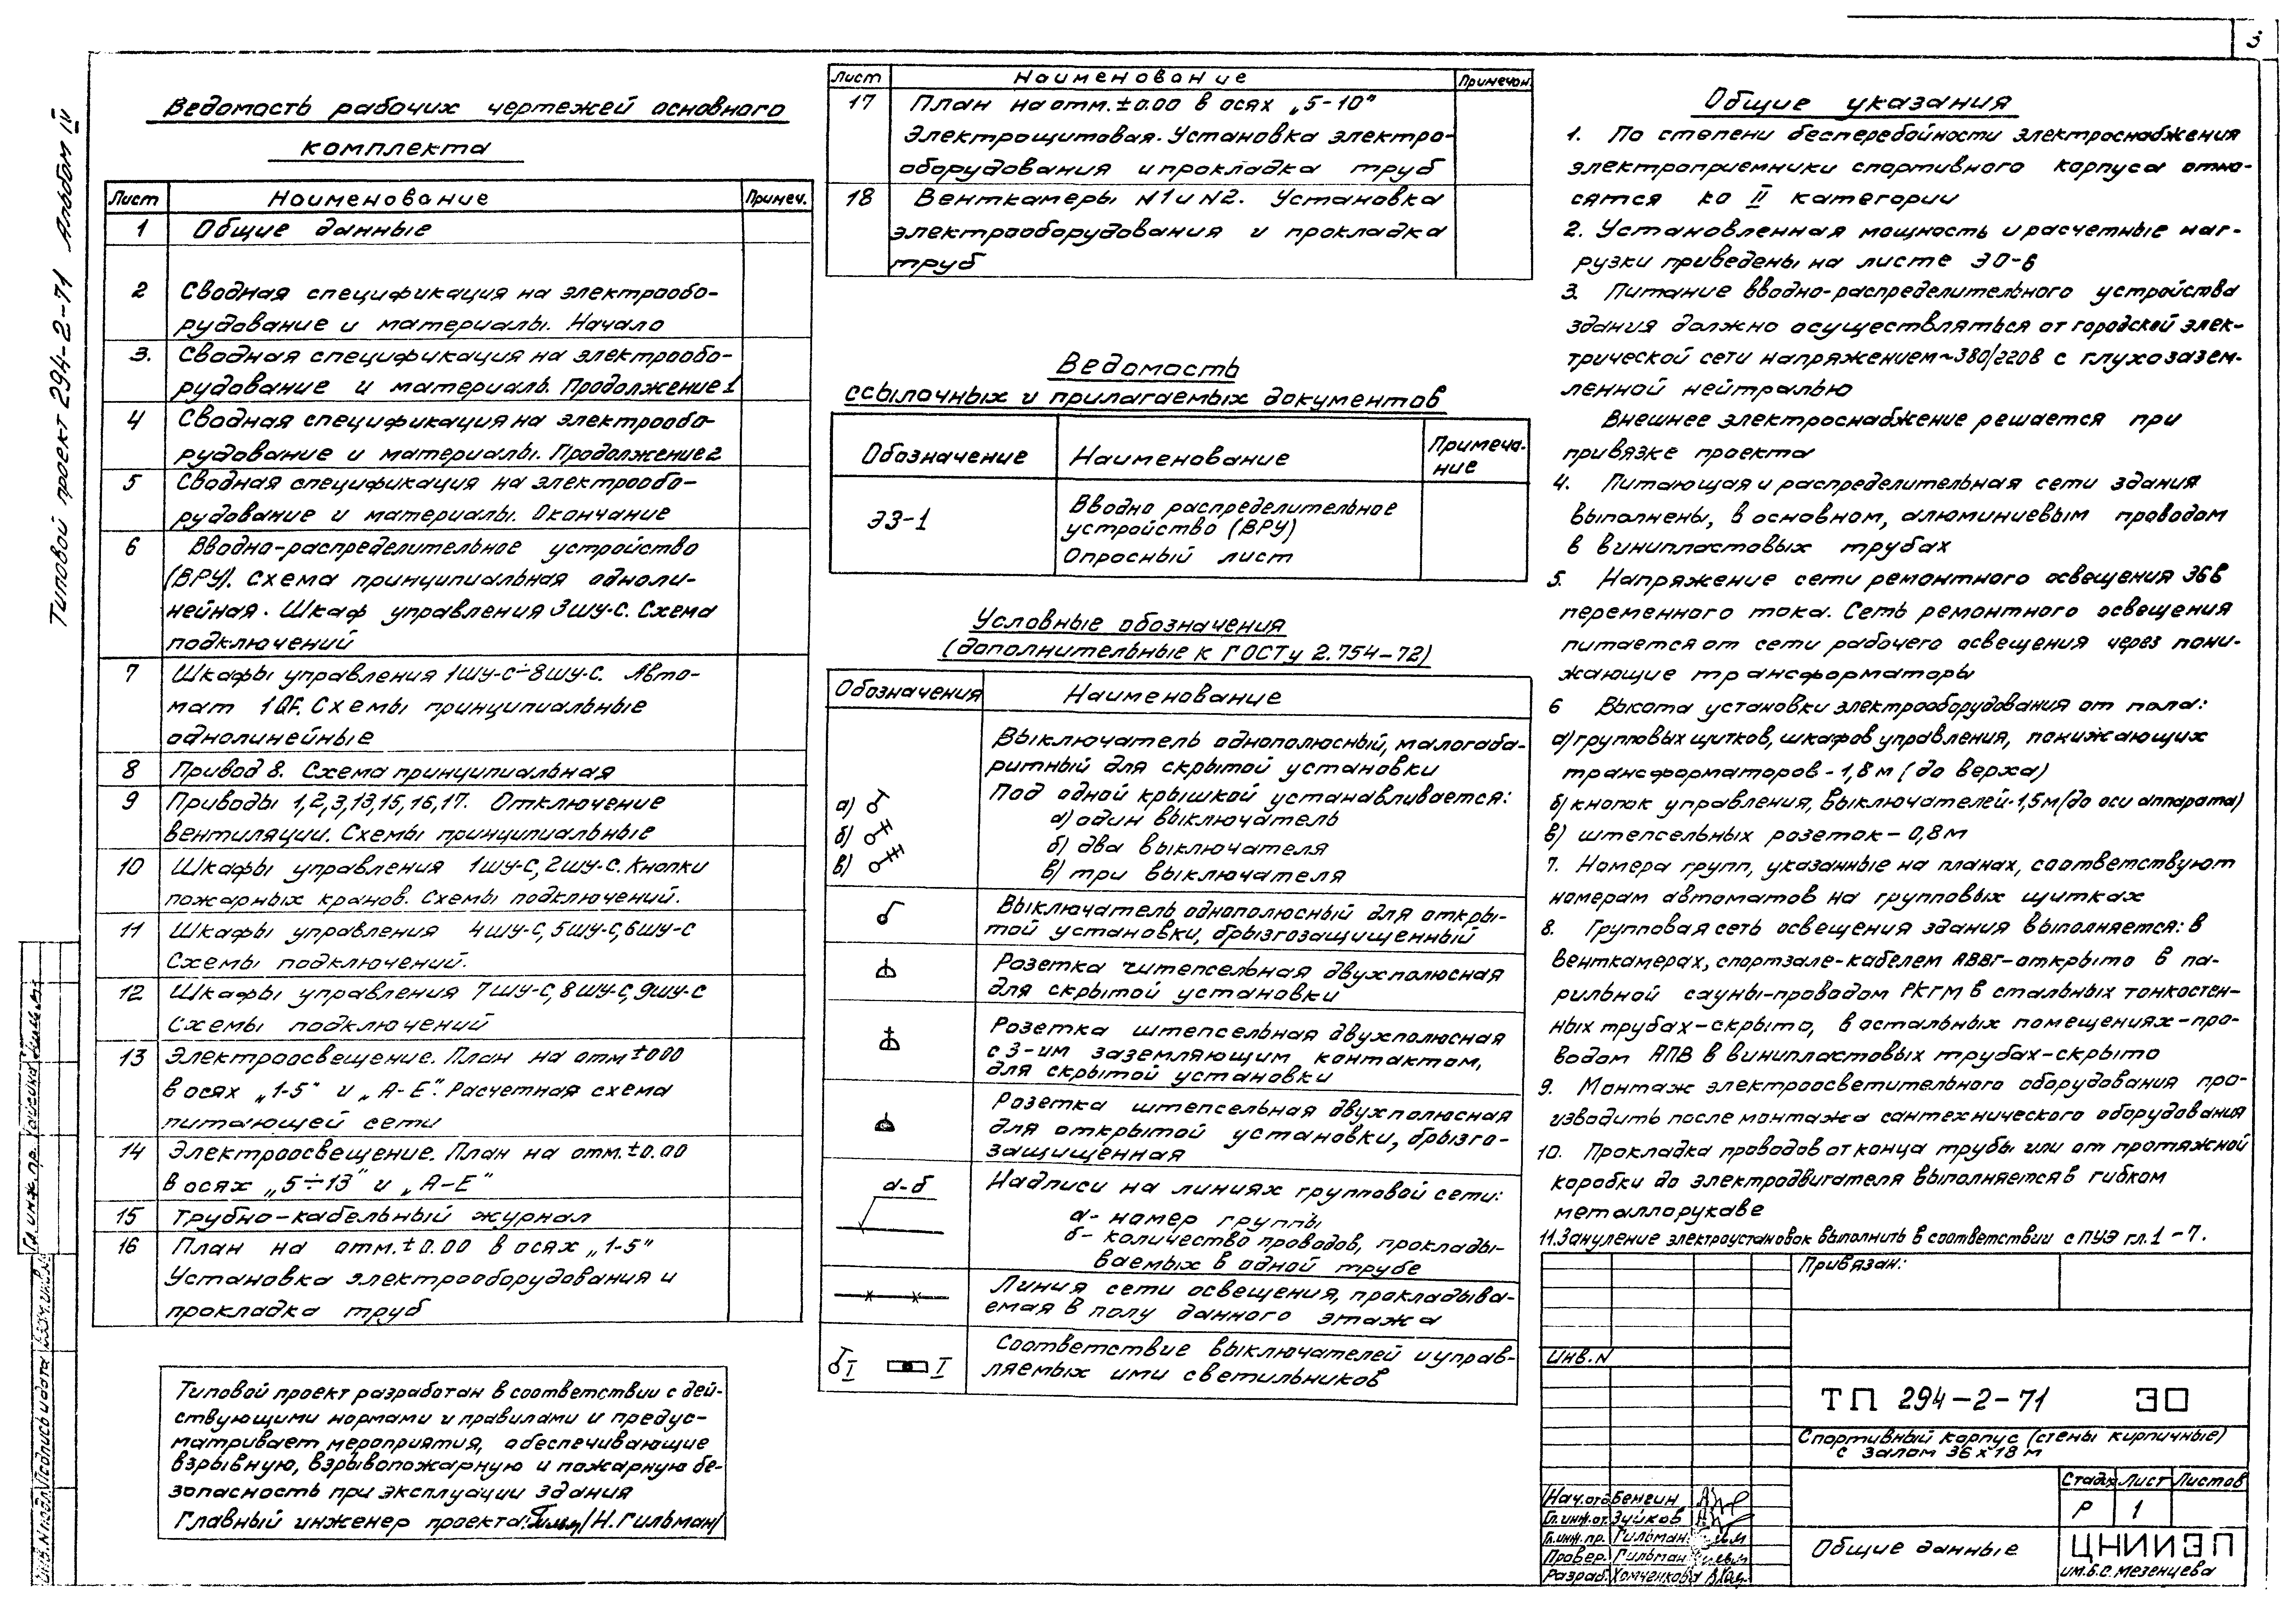 3
Типовой проект 294-2-71 Альбом IV
Ведомость рабочих чертежей основного
комплекта
Лист Наименование Примеч.
1 Общие данные
2 Сводная спецификация на электрообо-
рудование и материалы. Начало
3. Сводная спецификация на электрообо-
рудование и материалы. Продолжение 1
4 Сводная спецификация на электрообо-
рудование и материалы. Продолжение 2
5 Сводная спецификация на электрообо-
рудование и материалы. Окончание
6 Вводно-распределительное устройство
(ВРУ). Схема принципиальная одноли-
нейная. Шкаф управления 3ШУ-С. Схема
подключений
7 Шкафы управления 1ШУ-С÷8ШУ-С. Авто-
мат 1QF. Схемы принципиальные
однолинейные
8 Привод 8. Схема принципиальная
9 Приводы 1,2,3,13,15,16,17. Отключение
вентиляции. Схемы принципиальные
10 Шкафы управления 1ШУ-С, 2ШУ-С. Кнопки
пожарных кранов. Схемы подключений.
11 Шкафы управления 4ШУ-С, 5ШУ-С, 6ШУ-С
Схемы подключений.
12 Шкафы управления 7ШУ-С, 8ШУ-С, 9ШУ-С
Схемы подключений
13 Электроосвещение. План на отм ±000
в осях „1-5" и „А-Е". Расчетная схема
питающей сети
14 Электроосвещение. План на отм. ±0.00
в осях „5÷13" и „А-Е"
15 Трубно-кабельный журнал
16 План на отм. ±0.00 в осях „1-5"
Установка электрооборудования и
прокладка труб
Типовой проект разработан в соответствии с дей-
ствующими нормами и правилами и предус-
матривает мероприятия, обеспечивающие
взрывную, взрывопожарную и пожарную бе-
зопасность при эксплуации здания
Главный инженер проекта: /Н. Гильман/
Лист Наименование Примечан.
17 План на отм. ±0.00 в осях „5-10"
Электрощитовая. Установка электро-
оборудования и прокладка труб
18 Венткамеры N1 и N2. Установка
электрооборудования и прокладка
труб
Ведомость
ссылочных и прилагаемых документов
Обозначение Наименование Примеча-
ние
ЭЗ-1 Вводно распределительное
устройство (ВРУ)
Опросный лист
Условные обозначения
(дополнительные к ГОСТу 2.754-72)
Обозначения Наименование
Выключатель однополюсный, малогаба-
ритный для скрытой установки
Под одной крышкой устанавливается:
а) а) один выключатель
б) б) два выключателя
в) в) три выключателя
Выключатель однополюсный для откры-
той установки, брызгозащищенный
Розетка штепсельная двухполюсная
для скрытой установки
Розетка штепсельная двухполюсная
с 3-им заземляющим контактом,
для скрытой установки
Розетка штепсельная двухполюсная
для открытой установки, брызго-
защищенная
а-б Надписи на линиях групповой сети:
а- номер группы
б- количество проводов, проклады-
ваемых в одной трубе
Линия сети освещения, прокладыва-
емая в полу данного этажа
I I Соответствие выключателей и управ-
ляемых ими светильников
Общие указания
1. По степени бесперебойности электроснабжения
электроприемники спортивного корпуса отно-
сятся ко II категории
2. Установленная мощность и расчетные наг-
рузки приведены на листе ЭО-6
3. Питание вводно-распределительного устройства
здания должно осуществляться от городской элек-
трической сети напряжением ~380/220в с глухозазем-
ленной нейтралью
Внешнее электроснабжение решается при
привязке проекта
4. Питающая и распределительная сети здания
выполнены, в основном, алюминиевым проводом
в винипластовых трубах
5. Напряжение сети ремонтного освещения 36в
переменного тока. Сеть ремонтного освещения
питается от сети рабочего освещения через пони-
жающие трансформаторы
6 Высота установки электрооборудования от пола:
а) групповых щитков, шкафов управления, понижающих
трансформаторов - 1,8 м (до верха)
б) кнопок управления, выключателей - 1,5м (до оси аппарата)
в) штепсельных розеток - 0,8м
7. Номера групп, указанные на планах, соответствуют
номерам автоматов на групповых щитках
8. Групповая сеть освещения здания выполняется: в
венткамерах, спортзале-кабелем АВВГ-открыто в па-
рильной сауны-проводом РКГМ в стальных тонкостен-
ных трубах-скрыто, в остальных помещениях-про-
водом АПВ в винипластовых трубах-скрыто
9. Монтаж электроосветительного оборудования про-
изводить после монтажа сантехнического оборудования
10. Прокладка проводов от конца трубы или от протяжной
коробки до электродвигателя выполняется в гибком
металлорукаве
11. Зануление электроустановок выполнить в соответствии с ПУЭ гл. 1-7.
Привязан:
Инв. N
ТП 294-2-71 ЭО
Спортивный корпус (стены кирпичные)
с залом 36х18 м
Стадия Лист Листов
Р 1
Нач.отд Бенгин
Гл.инж.от. Зуйков
Гл.инж.пр. Гильман
Провер. Гильман
Разраб. Хомченкова
Общие данные
ЦНИИЭП
им. Б.С. Мезенцева
Гл. инж. пр.
Инв. N подл Подпись и дата Взам. инв. N